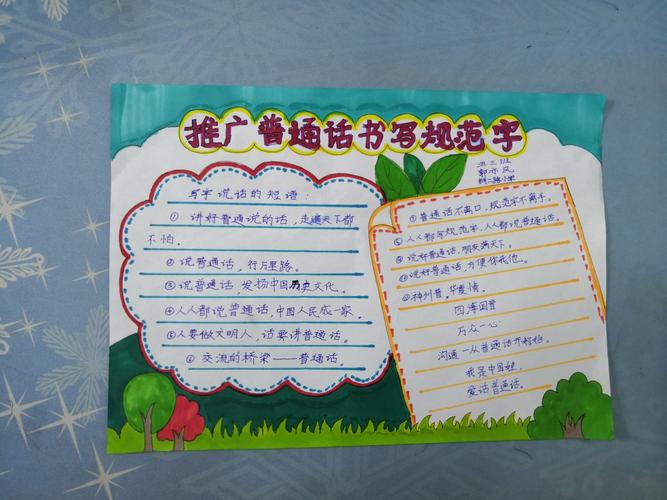 推广普通话书写规范字
五三班
写字说话的短语：
① 讲好普通说的话，走遍天下都
不怕。
②说普通话，行万里路。
③说普通话 发扬中国历史文化。
④人人都说普通话，中国人民成一家。
⑤人要做文明人，话要讲普通话。
⑥ 交流的桥梁——普通话。
①普通话不离口，规范字不离手。
②人人都写规范字，人人都说普通话。
③说好普通话，朋友满天下。
④说好普通话，方便你我他。
⑤神州普，华夏情，
四海同音
万众一心
沟通－从普通话开始。
我是中国娃
爱说普通话。